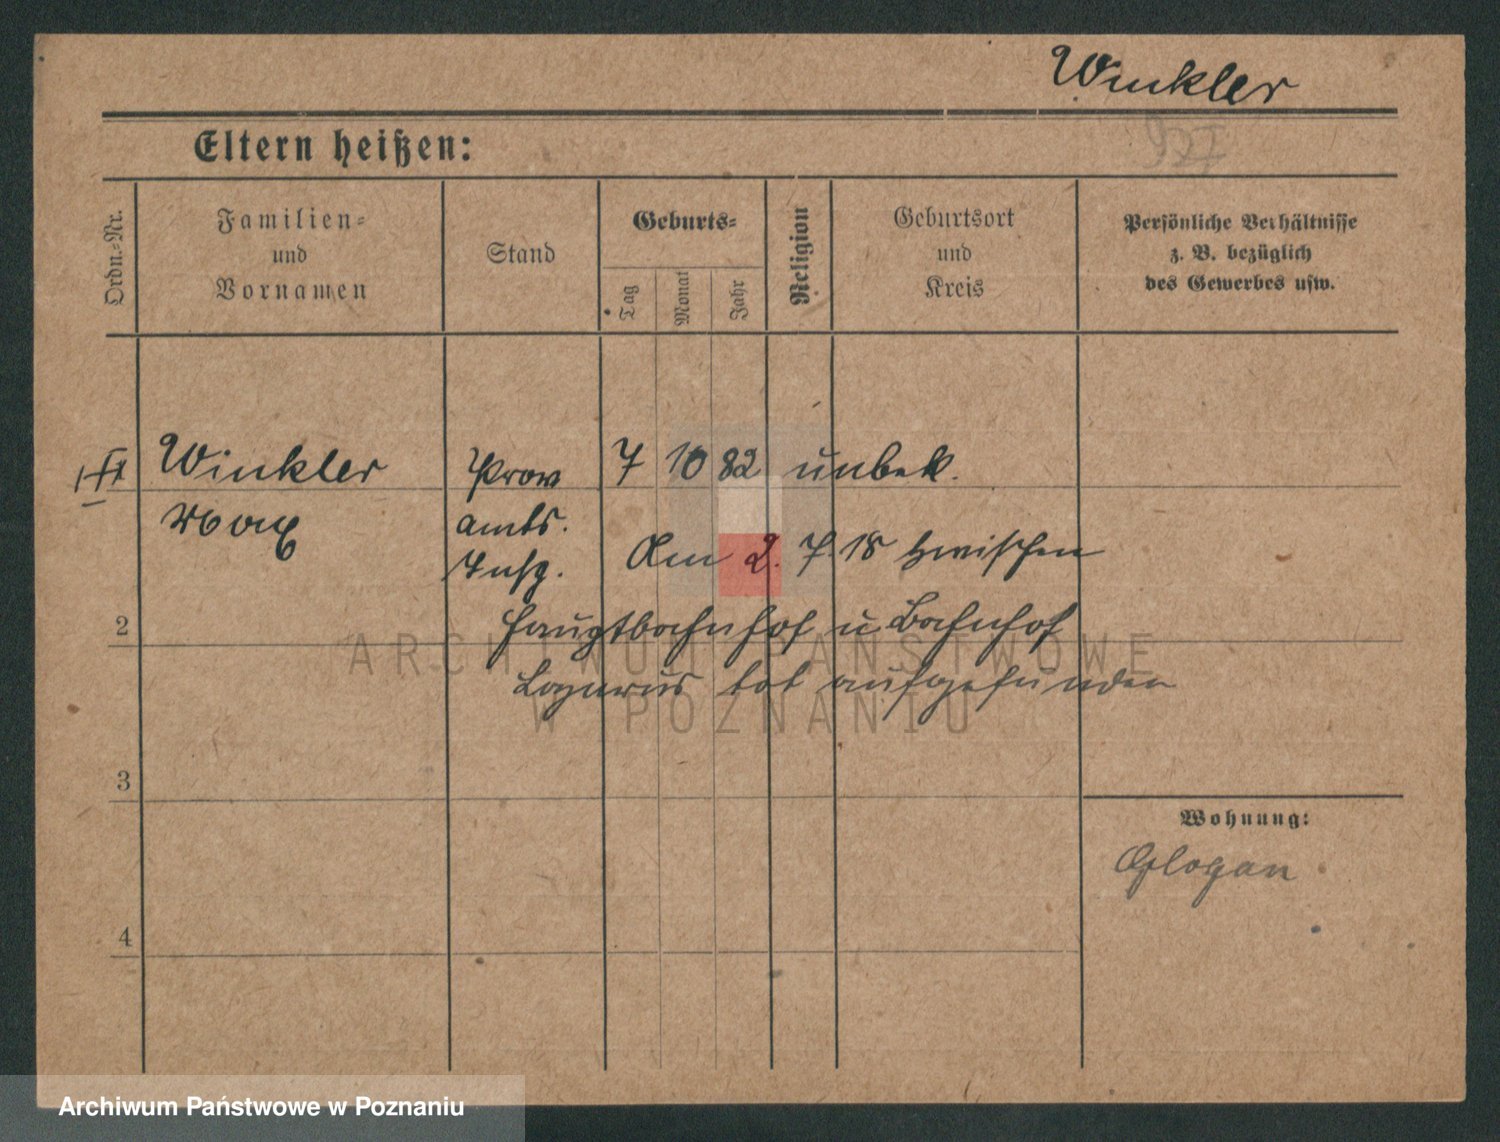 Winkler
927
Eltern heißen:
Ordn.-Nr.
Familien-
und
Vornamen
Stand
Geburts-
Tag
Monat
Jahr
Religion
Geburtsort
und
Kreis
Persönliche Verhältnisse
z. B. bezüglich
des Gewerbes usw.
Winkler Prov 7 10 82 unbek.
Max amts.
Insp. Am 2. 7. 18 zwischen
2 Hauptbahnhof u Bahnhof
Lazarus tot aufgefunden
ARCHIWUM PAŃSTWOWE
W POZNANIU
3
Wohnung:
Glogau
4
Archiwum Państwowe w Poznaniu